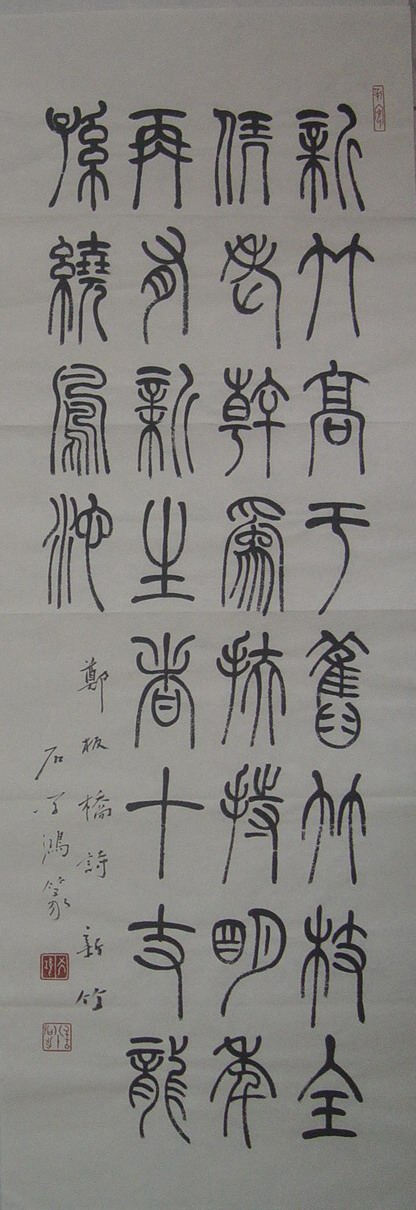 新竹高于舊竹枝全
凭老幹爲扶持明年
再有新生者十丈龍
孫繞鳳池
鄭板橋詩新竹
石鴻篆